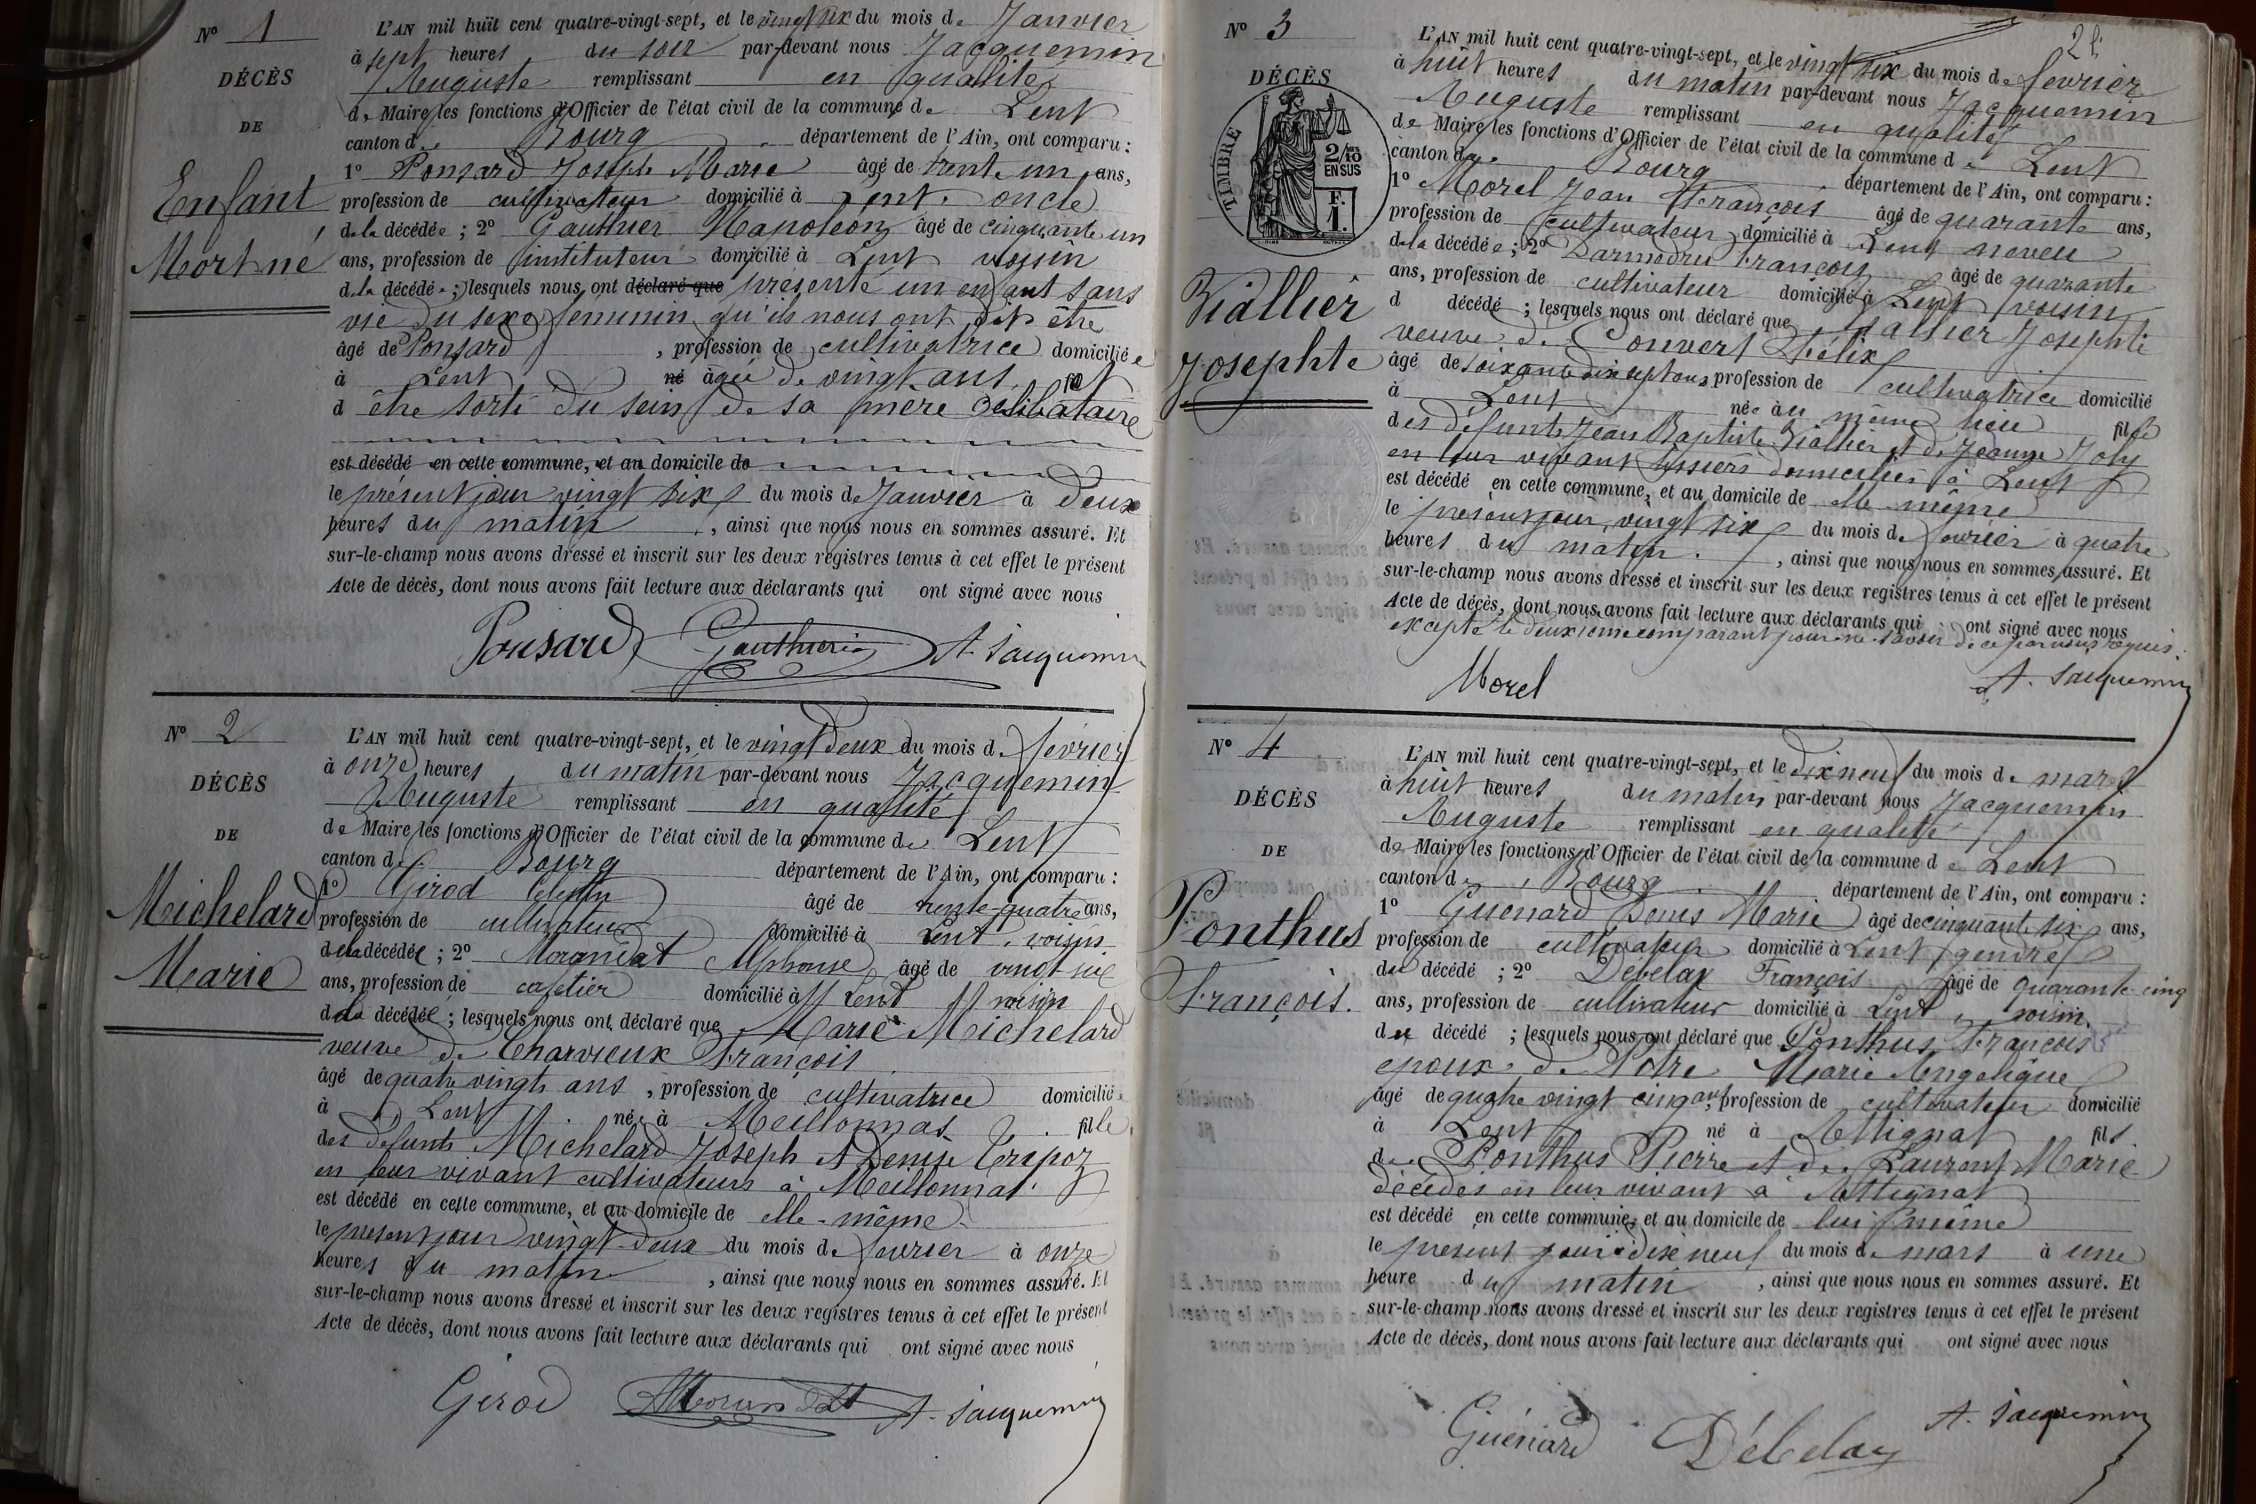 N° 1
DÉCÈS
DE
Enfant
Mort né
L'AN mil huit cent quatre-vingt-sept, et le vingt six du mois de Janvier
à sept heures du soir par-devant nous Jacquemin
Auguste remplissant en qualité
de Maire les fonctions d'Officier de l'état civil de la commune de Lent
canton de Bourg département de l'Ain, ont comparu :
1° Ponsard Joseph Marie âgé de trente un ans,
profession de cultivateur domicilié à Lent. oncle
de la décédée ; 2° Gauthier Napoléon âgé de cinquante un
ans, profession de instituteur domicilié à Lent voisin
de la décédée ; lesquels nous ont déclaré que présenté un enfant sans
vie du sexe féminin qu'ils nous ont dit être
âgé de Ponsard , profession de cultivatrice domiciliée
à Lent né âgée de vingt ans fil et
d être sorti du sein de sa mère célibataire
est décédé en cette commune, et au domicile de
le présent jour vingt six du mois de Janvier à deux
heures du matin , ainsi que nous nous en sommes assuré. Et
sur-le-champ nous avons dressé et inscrit sur les deux registres tenus à cet effet le présent
Acte de décès, dont nous avons fait lecture aux déclarants qui ont signé avec nous
Ponsard Gauthier A. Jacquemin
N° 2
DÉCÈS
DE
Michelard
Marie
L'AN mil huit cent quatre-vingt-sept, et le vingt deux du mois de février
à onze heures du matin par-devant nous Jacquemin
Auguste remplissant en qualité
de Maire les fonctions d'Officier de l'état civil de la commune de Lent
canton de Bourg département de l'Ain, ont comparu :
1° Girod âgé de trente quatre ans,
profession de cultivateur domicilié à Lent, voisin
de la décédée ; 2° Morandat Alphonse âgé de vingt six
ans, profession de cafetier domicilié à Lent voisin
de la décédée ; lesquels nous ont déclaré que Marie Michelard
veuve de Charvieux François
âgé de quatre vingts ans , profession de cultivatrice domiciliée
à Lent née à Meillonnas fille
des défunts Michelard Joseph et Denise Tripoz
en leur vivant cultivateurs à Meillonnas
est décédé en cette commune, et au domicile de elle-même
le présent jour vingt-deux du mois de février à onze
heures du matin , ainsi que nous nous en sommes assuré. Et
sur-le-champ nous avons dressé et inscrit sur les deux registres tenus à cet effet le présent
Acte de décès, dont nous avons fait lecture aux déclarants qui ont signé avec nous
Girod AMorandat A. Jacquemin
22
N° 3
DÉCÈS
TIMBRE
2/10
EN SUS
F.
1.
Viallier
Josephte
L'AN mil huit cent quatre-vingt-sept, et le vingt six du mois de février
à huit heures du matin par-devant nous Jacquemin
Auguste remplissant en qualité
de Maire les fonctions d'Officier de l'état civil de la commune de Lent
canton de Bourg département de l'Ain, ont comparu :
1° Morel Jean François âgé de quarante ans,
profession de cultivateur domicilié à Lent neveu
de la décédée ; 2° Darmedru François âgé de quarante
ans, profession de cultivateur domicilié à Lent voisin
d décédé ; lesquels nous ont déclaré que Viallier Josephte
veuve de Convert Félix
âgé de soixante dix sept ans profession de cultivatrice domicilié
à Lent née au même lieu fille
des défunts Jean Baptiste Viallier et de Jeanne Joly
en leur vivant domiciliés à Lent
est décédé en cette commune, et au domicile de elle-même
le présent jour vingt six du mois de février à quatre
heures du matin. , ainsi que nous nous en sommes assuré. Et
sur-le-champ nous avons dressé et inscrit sur les deux registres tenus à cet effet le présent
Acte de décès, dont nous avons fait lecture aux déclarants qui ont signé avec nous
excepté le deuxième comparant pour ne savoir de ce par nous requis.
Morel A. Jacquemin
N° 4
DÉCÈS
DE
Ponthus
François.
L'AN mil huit cent quatre-vingt-sept, et le dix neuf du mois de mars
à huit heures du matin par-devant nous Jacquemin
Auguste remplissant en qualité
de Maire les fonctions d'Officier de l'état civil de la commune de Lent
canton de Bourg département de l'Ain, ont comparu :
1° Guénard Denis Marie âgé de cinquante six ans,
profession de cultivateur domicilié à Lent gendre
du décédé ; 2° Debelay François âgé de quarante-cinq
ans, profession de cultivateur domicilié à Lent, voisin.
du décédé ; lesquels nous ont déclaré que Ponthus François
époux de Marie Angélique
âgé de quatre vingt cinq ans, profession de cultivateur domicilié
à Lent né à Attignat fils
de Ponthus Pierre et de Laurent Marie
décédés en leur vivant à Attignat
est décédé en cette commune, et au domicile de lui même
le présent jour dix neuf du mois de mars à une
heure du matin , ainsi que nous nous en sommes assuré. Et
sur-le-champ nous avons dressé et inscrit sur les deux registres tenus à cet effet le présent
Acte de décès, dont nous avons fait lecture aux déclarants qui ont signé avec nous
Guénard Débelay A. Jacquemin